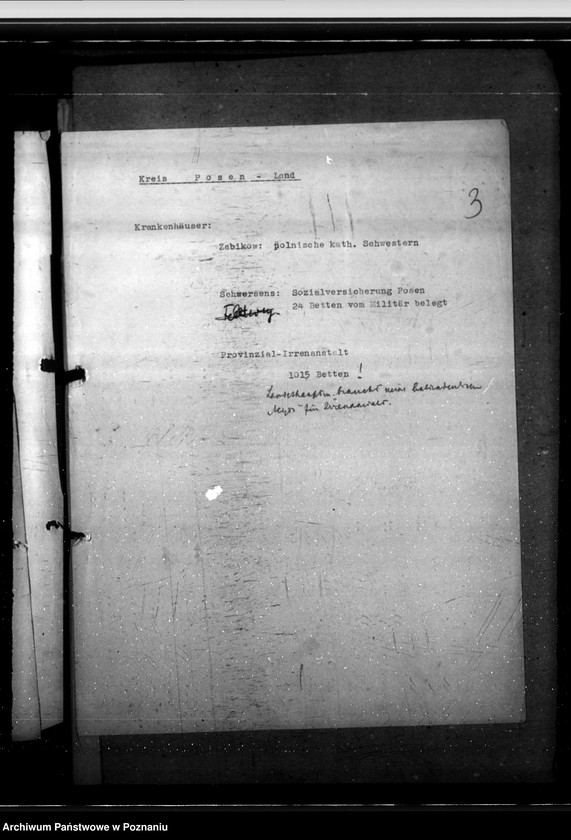 3
Kreis Posen - Land
Krankenhäuser:
Zabikow: polnische kath. Schwestern
Schwersens: Sozialversicherung Posen
24 Betten vom Militär belegt
Provinzial-Irrenanstalt
1015 Betten !
braucht keine
für
Archiwum Państwowe w Poznaniu